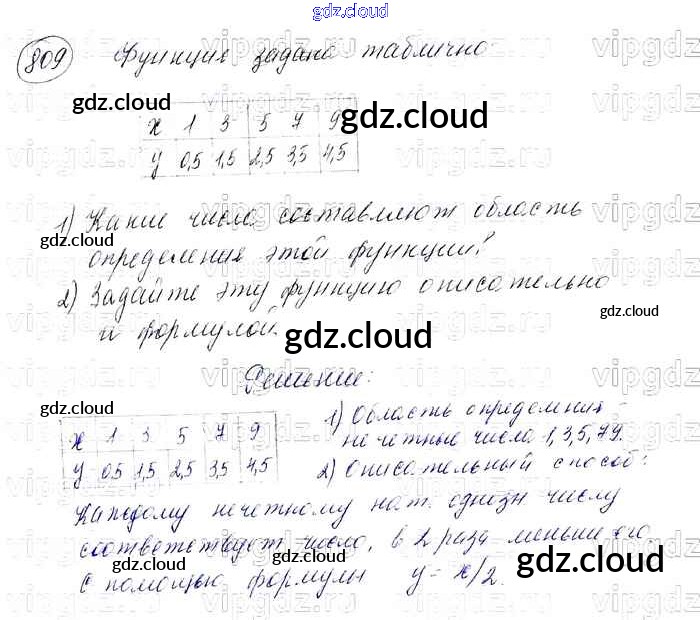 gdz.cloud
809 Функция задана таблично
gdz.cloud
x 1 3 5 7 9
gdz.cloud
y 0,5 1,5 2,5 3,5 4,5
1) Какие числа составляют область
gdz.cloud
определения этой функции?
2) Задайте эту функцию описательно
gdz.cloud
и формулой.
gdz.cloud
Решение:
gdz.cloud
x 1 3 5 7 9
y 0,5 1,5 2,5 3,5 4,5
1) Область определения
нечётные числа 1,3,5,7,9.
gdz.cloud
2) Описательный способ:
Каждому нечетному нат. однозн числу
gdz.cloud
соответствует число, в 2 раза меньше его
gdz.cloud
gdz.cloud
С помощью формулы y = x/2.